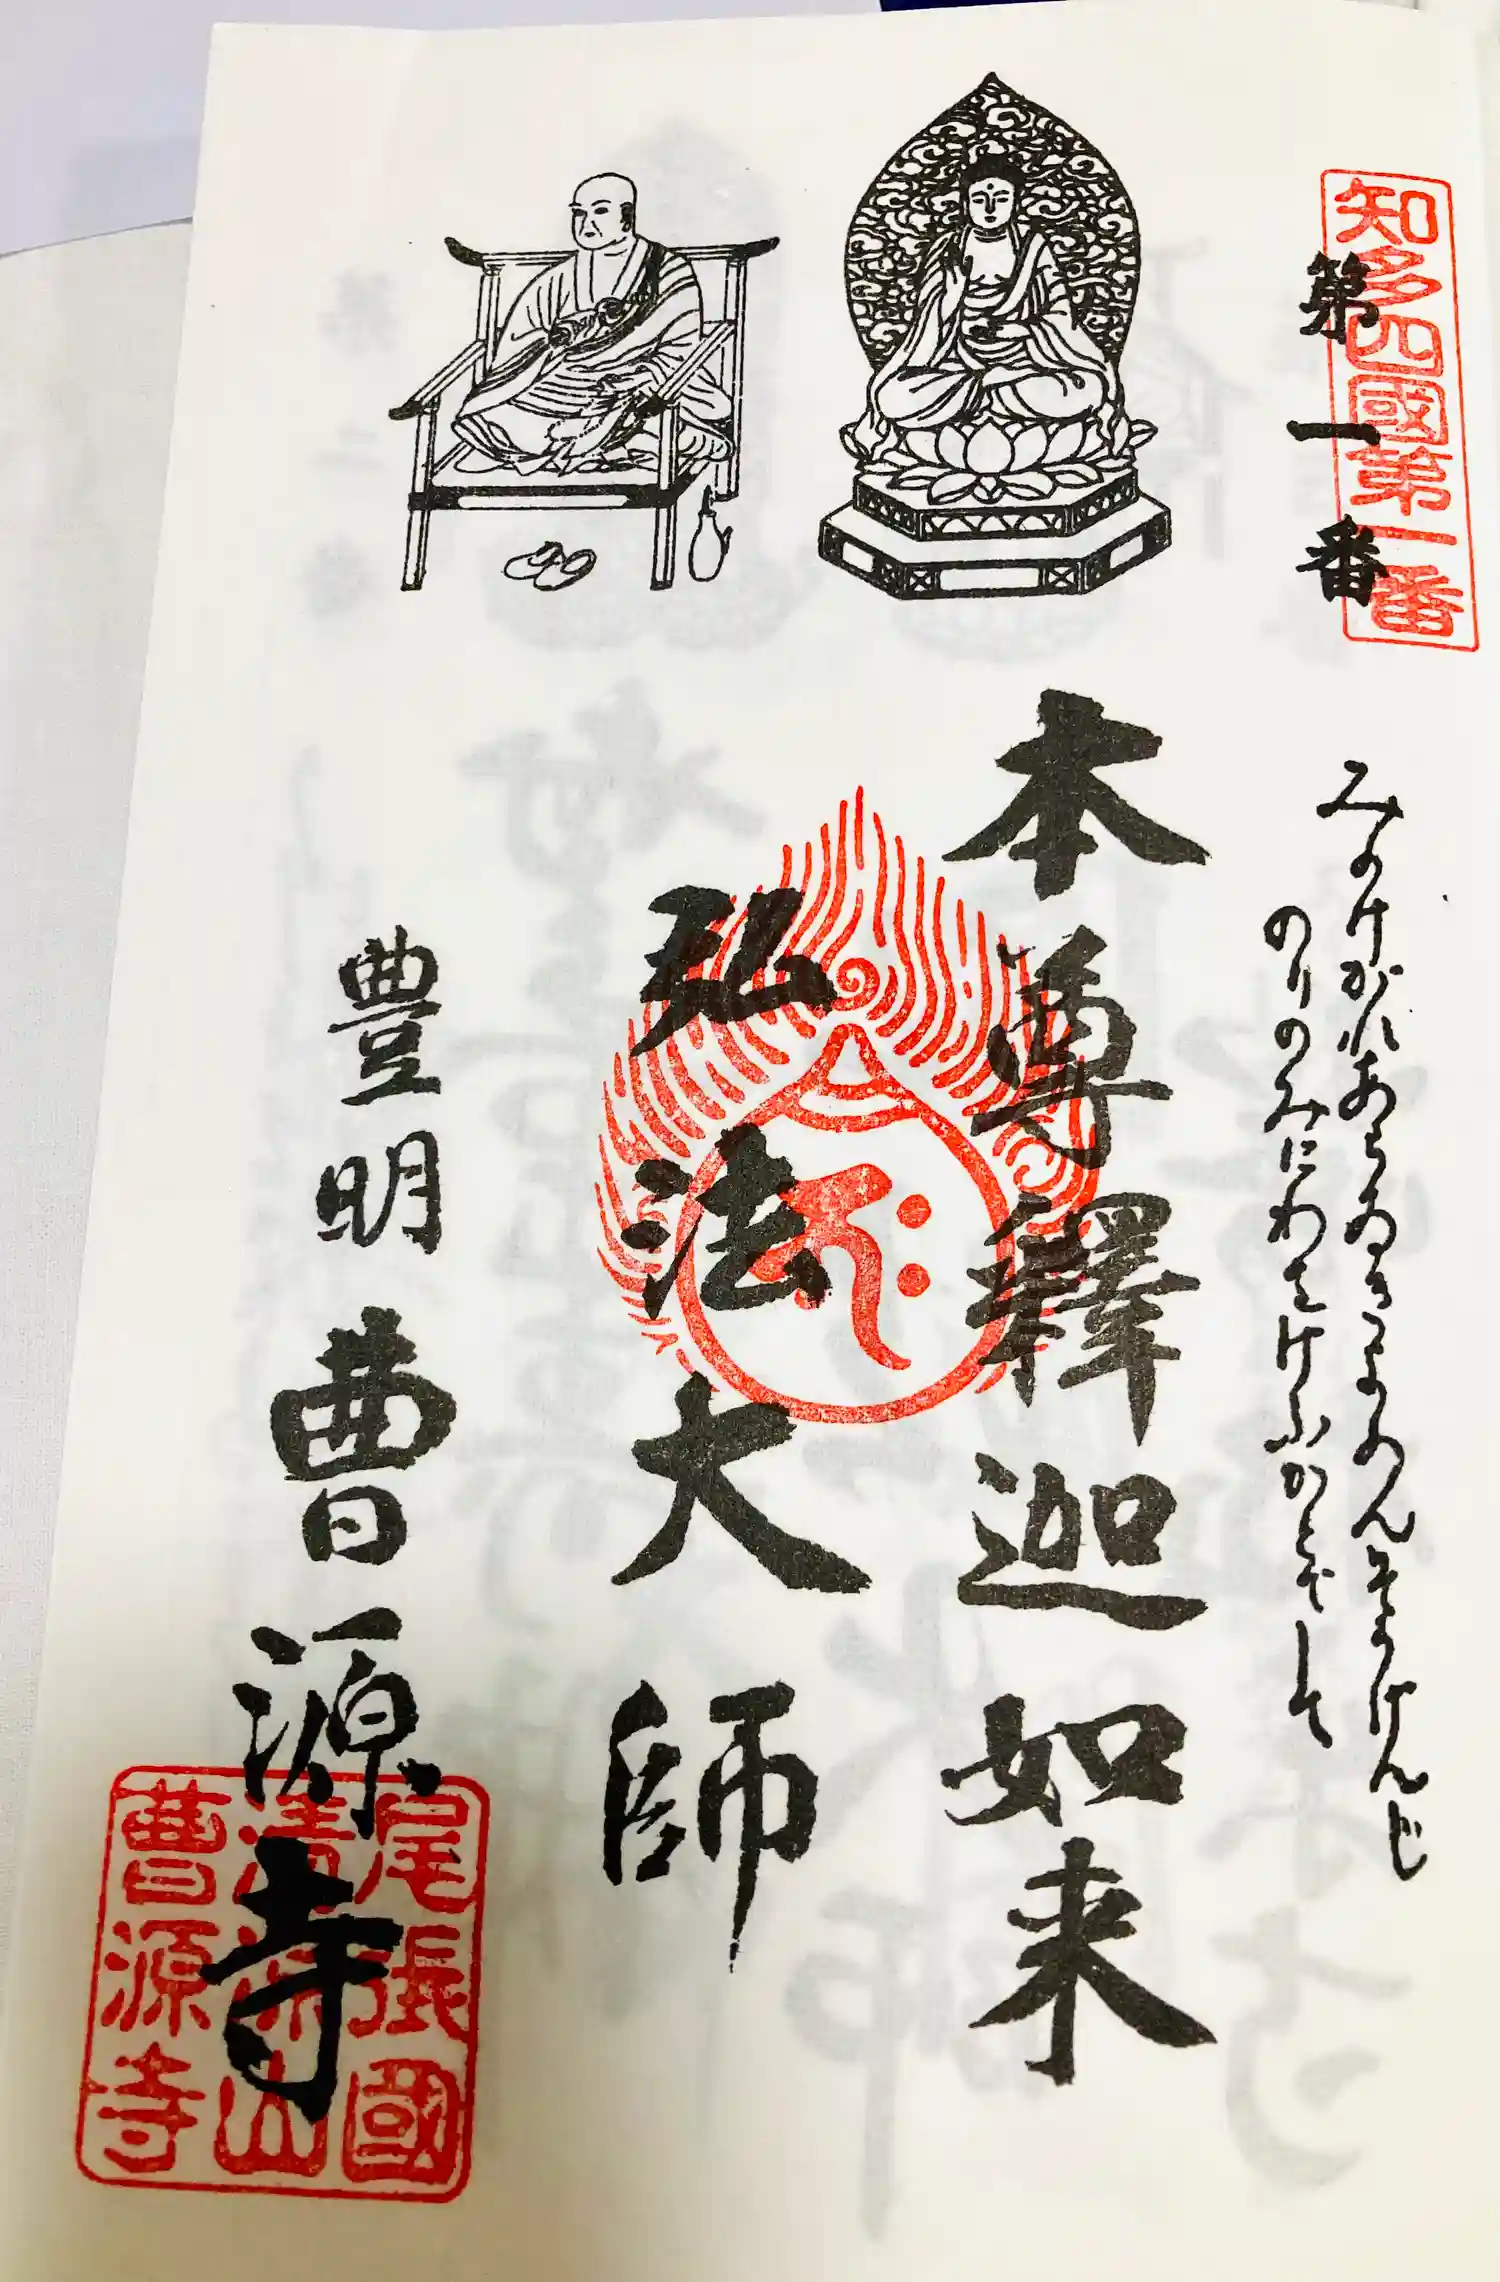 知多四國第一番
第一番
みのけがれあらゐきよめんそうげんじ
のりのみにわをけふ
本尊釋迦如来
弘法大師
豊明曹源寺
尾張國
清涼山
曹源寺